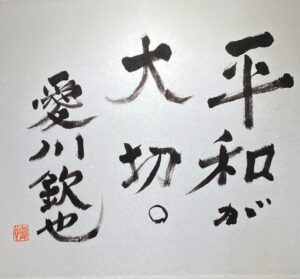 平和が
大切。
愛川欽也